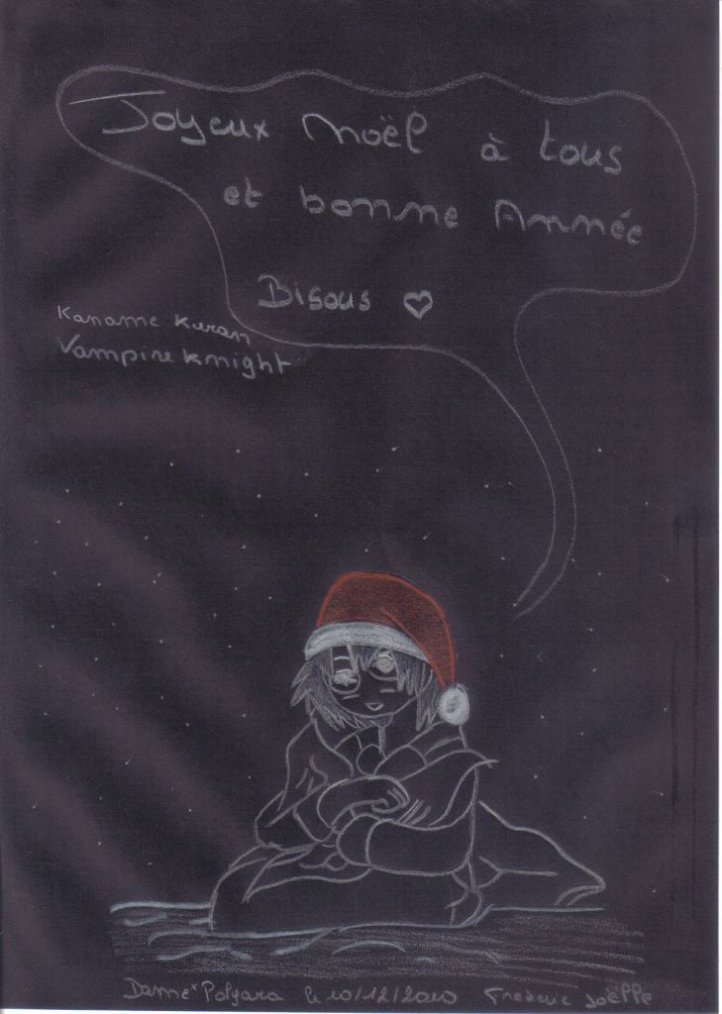 Joyeux Noël à tous
et bonne Année
Bisous ♡
Kaname Kuran
Vampire Knight
Dame*Polgara le 10/12/2010 Frederic Joëlle